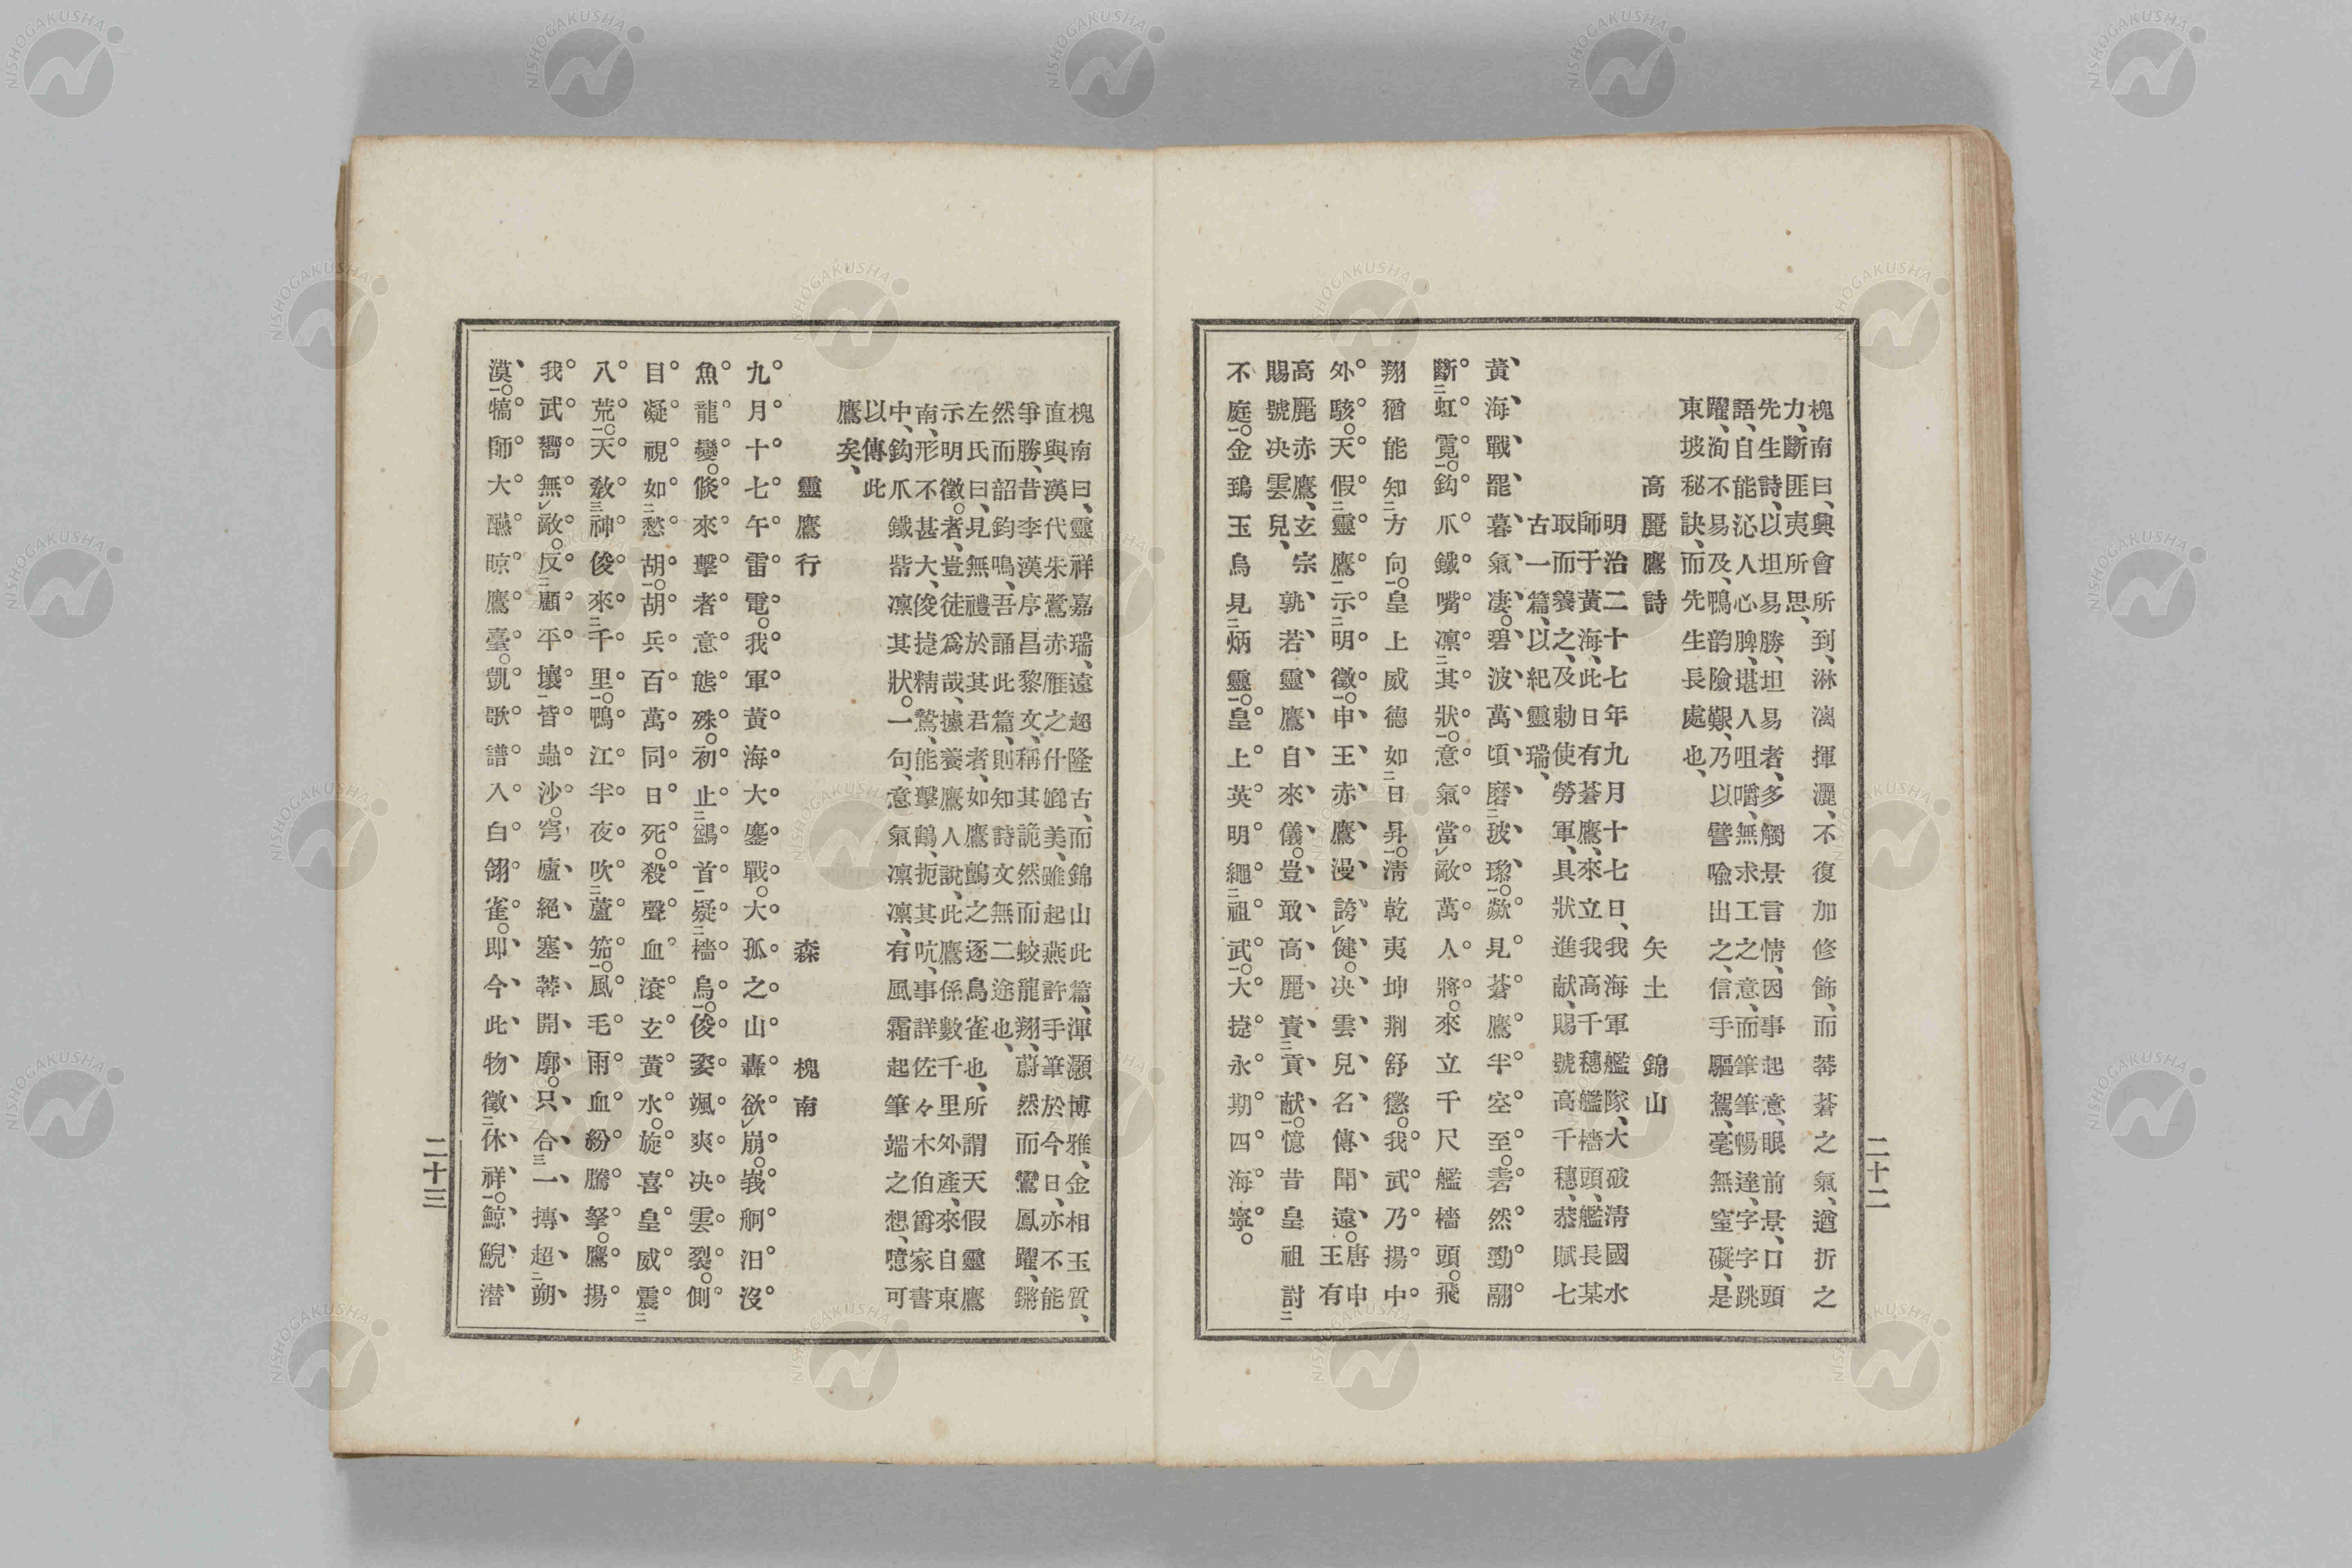 槐南曰、興會所到、淋漓揮灑、不復加修飾、而莽蒼之氣、遒折之
力、斷匪夷所思、
先生詩、以坦易勝、坦易者、多觸景言情、因事起意、眼前景、口頭
語、自能沁人心脾、堪人咀嚼、無求工之意、而筆筆暢達、字字跳
躍、洵不易及、鴨韵險艱、乃以譬喩出之、信手驅駕、毫無窒礙、是
東坡秘訣、而先生長處也、
高麗鷹詩 矢土錦山
明治二十七年九月十七日、我海軍艦隊、大破清國水
師于黃海、此日有蒼鷹、來立我高千穗艦檣頭、艦長某
取而養之、及勅使勞軍、具狀進献、賜號高千穗、恭賦七
古一篇、以紀靈瑞、
黃海戰罷暮氣凄。碧波萬頃磨二玻瓈一。歘見蒼鷹半空至。翥然勁翮
斷二虹霓一。鈎爪鐵嘴凛二其狀一。意氣當レ敵萬人將。來立千尺艦檣頭。飛
翔猶能知二方向一。皇上威德如二日昇一。清乾夷坤荆舒懲。我武乃揚中
外駭。天假二靈鷹一示二明徵一。申王赤鷹漫誇レ健。决雲兒名傳聞遠。唐申王有
高麗赤鷹、玄宗賜號决雲兒、孰若靈鷹自來儀。豈敢高麗責二貢献一。憶昔皇祖討二
不庭一。金鵄玉鳥見二炳靈一。皇上英明繩二祖武一。大捷永期四海寧。
二十二
槐南曰、靈祥嘉瑞、遠超隆古、而錦山此篇、渾灝博雅、金相玉質、
直與漢代朱鷺赤雁之什媲美、雖起燕許手筆於今日、亦不能
爭勝、昔李漢序昌黎文、稱其詭然而蛟龍翔、蔚然而鸞鳳躍、鏘
然而韶鈞鳴、吾誦此篇、則知詩文無二途也、
左氏曰、見無禮於其君者、如鷹鸇之逐鳥雀也、所謂天假靈鷹
示明徵。者、豈徒爲哉、據養鷹人說、此鷹係數千里外產、來自東
南、形不甚大、俊捷精鷙、能擊鶴、扼其吭、事詳佐々木伯爵家書
中、鈎爪鐵嘴凛其狀。一句、意氣凛凛、有風霜起筆端之想、噫可
以傳此
鷹矣、
靈鷹行 森槐南
九月十七午雷電。我軍黃海大鏖戰。大孤之山轟欲レ崩。峩舸汨沒
魚龍變。倐來擊者意態殊。初止二鷁首一疑二檣烏一。俊姿颯爽决雲裂。側
目凝視如二愁胡一。胡兵百萬同日死。殺聲血滾玄黃水。旋喜皇威震二
八荒一。天敎三神俊來二千里一。鴨江半夜吹二蘆笳一。風毛雨血紛騰拏。鷹揚
我武嚮無レ敵。反二顧平壤一皆蟲沙。穹廬絕塞莽開廓。只合三一摶超二朔
漠一。犒師大醼晾鷹臺。凱歌譜入白翎雀。即今此物徵二休祥一。鯨鯢潜
二十三